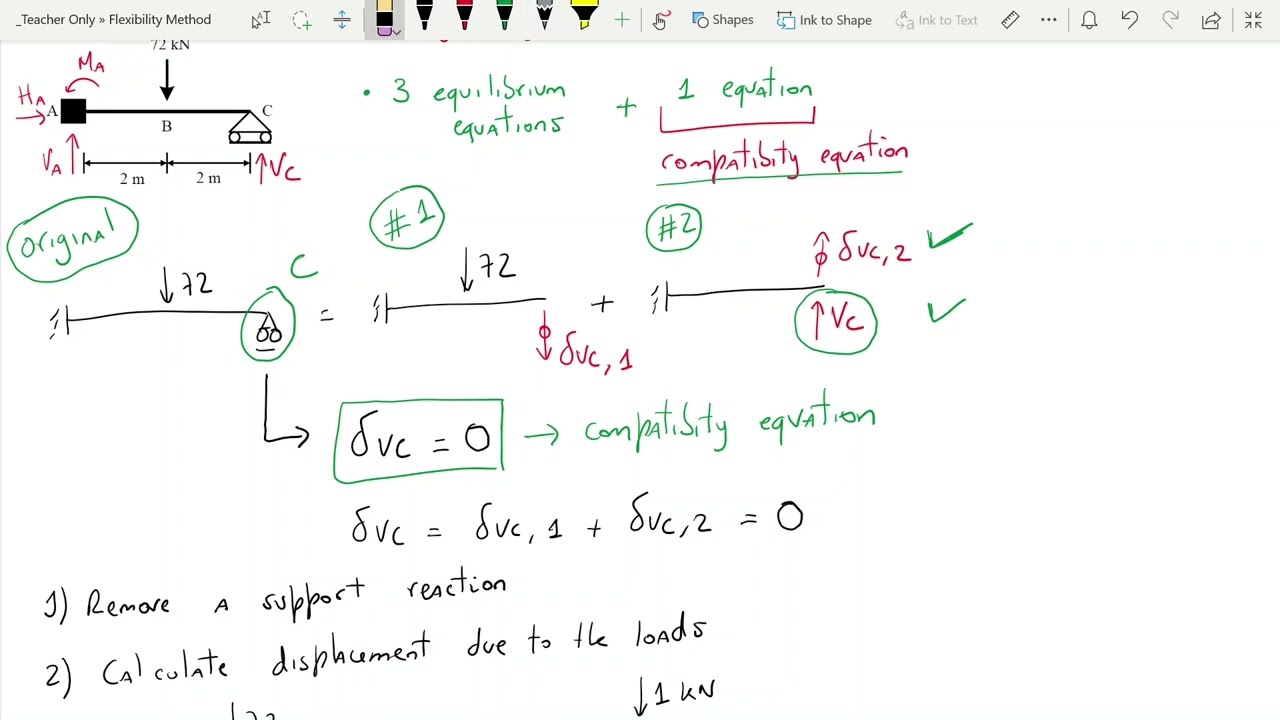 _Teacher Only » Flexibility Method
Shapes
Ink to Shape
Ink to Text
72 kN
MA
HA
A
B
C
VA
VC
2 m
2 m
• 3 equilibrium + 1 equation
equations
compatibity equation
original
#1
#2
72
C
=
72
δVC,1
+
δVC,2
VC
δVC = 0 → compatibity equation
δVC = δVC,1 + δVC,2 = 0
1) Remove a support reaction
2) Calculate displacement due to the loads
1 kN